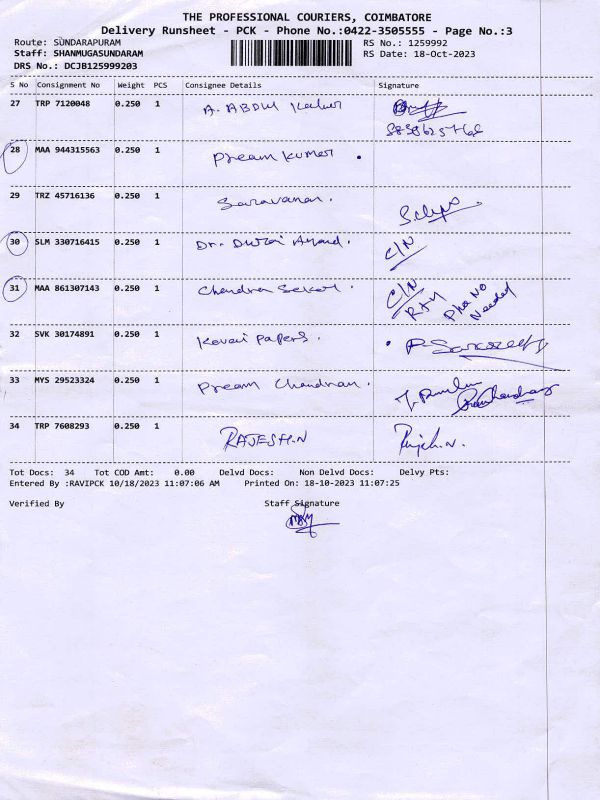 THE PROFESSIONAL COURIERS, COIMBATORE
Delivery Runsheet - PCK - Phone No.:0422-3505555 - Page No.:3
Route: SUNDARAPURAM RS No.: 1259992
Staff: SHANMUGASUNDARAM RS Date: 18-Oct-2023
DRS No.: DCJB125999203
S No Consignment No Weight PCS Consignee Details Signature
27 TRP 7120048 0.250 1 A. ABDUL
28 MAA 944315563 0.250 1 Pream Kumer
29 TRZ 45716136 0.250 1 Saravanan.
30 SLM 330716415 0.250 1 Dr. Durai Anand. C/N
31 MAA 861307143 0.250 1 Chandra Seker. C/N
Pho No
Needed
32 SVK 30174891 0.250 1 Kovai Papers.
33 MYS 29523324 0.250 1 Pream Chandran.
34 TRP 7608293 0.250 1 RAJESH.N
Tot Docs: 34 Tot COD Amt: 0.00 Delvd Docs: Non Delvd Docs: Delvy Pts:
Entered By :RAVIPCK 10/18/2023 11:07:06 AM Printed On: 18-10-2023 11:07:25
Verified By Staff Signature